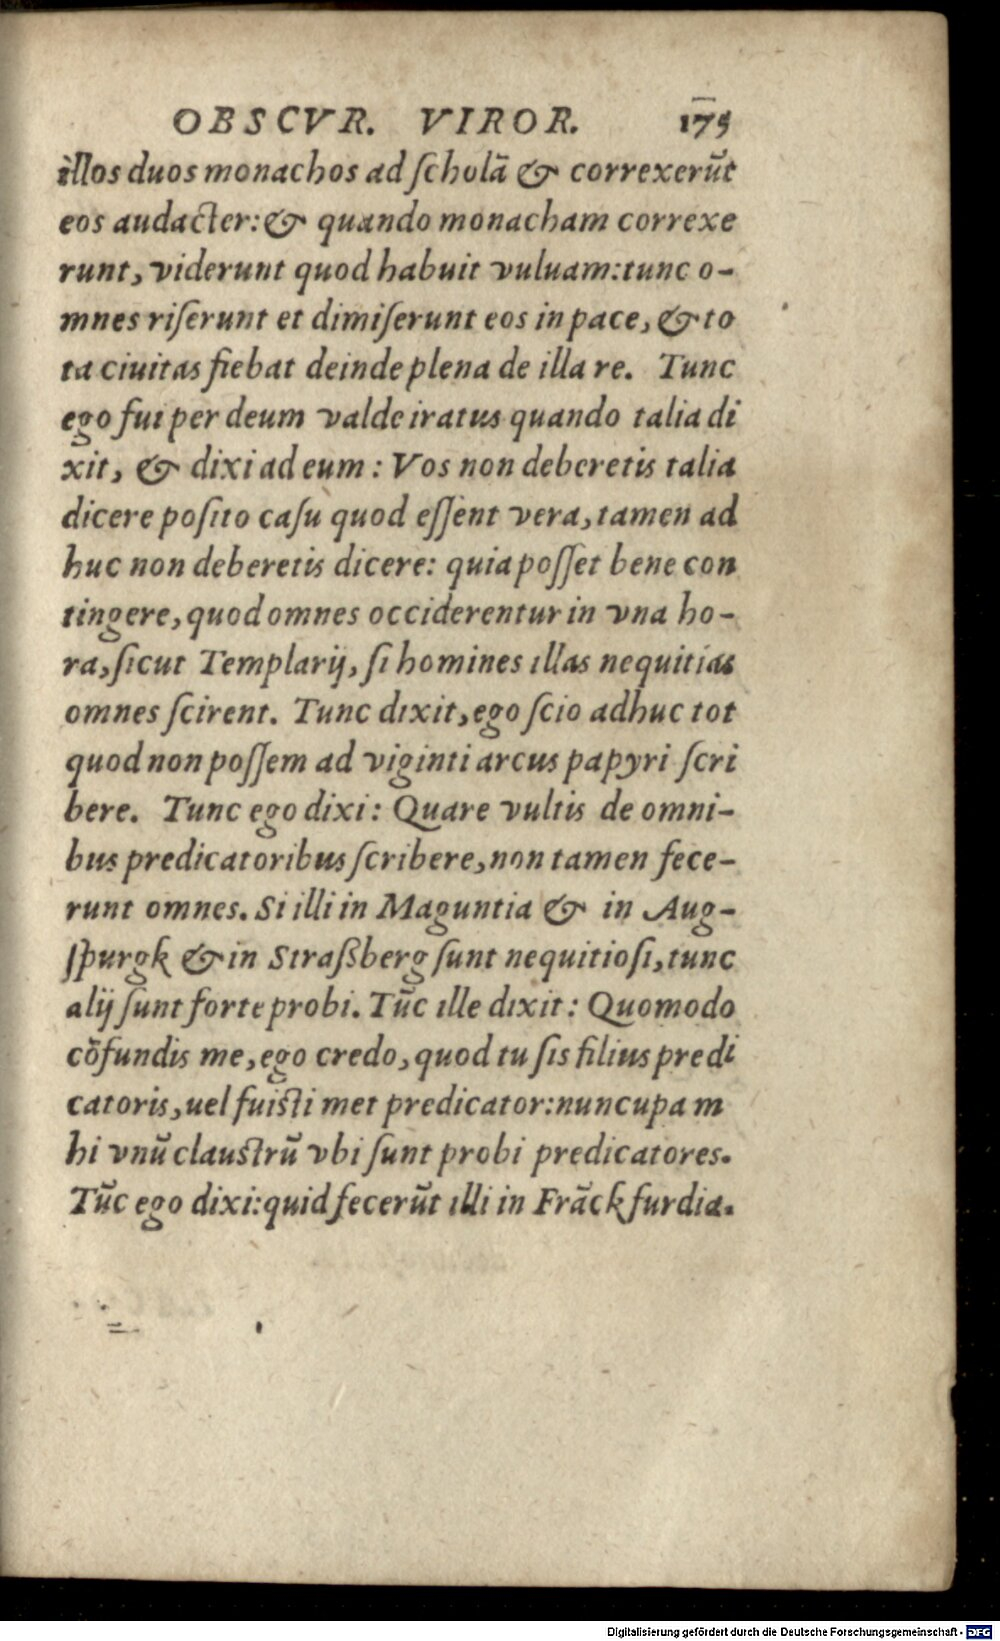 OBSCVR. VIROR. 175
illos duos monachos ad ſcholā & correxerūt
eos audacter:& quando monacham correxe
runt, viderunt quod habuit vuluam:tunc o-
mnes riſerunt et dimiſerunt eos in pace, & to
ta ciuitas fiebat deinde plena de illa re. Tunc
ego fui per deum valde iratus quando talia di
xit, & dixi ad eum : Vos non deberetis talia
dicere poſito caſu quod eſſent vera, tamen ad
huc non deberetis dicere: quia poſſet bene con
tingere, quod omnes occiderentur in vna ho-
ra, ſicut Templarij, ſi homines illas nequitias
omnes ſcirent. Tunc dixit, ego ſcio adhuc tot
quod non poſſem ad viginti arcus papyri ſcri
bere. Tunc ego dixi: Quare vultis de omni-
bus predicatoribus ſcribere, non tamen fece-
runt omnes. Si illi in Maguntia & in Aug-
ſpurgk & in Straßberg ſunt nequitioſi, tunc
alij ſunt forte probi. Tūc ille dixit: Quomodo
cōfundis me, ego credo, quod tu ſis filius predi
catoris, uel fuiſti met predicator:nuncupa m
hi vnū clauſtrū vbi ſunt probi predicatores.
Tūc ego dixi:quid fecerūt illi in Frāckfurdia.
Digitalisierung gefördert durch die Deutsche Forschungsgemeinschaft - DFG